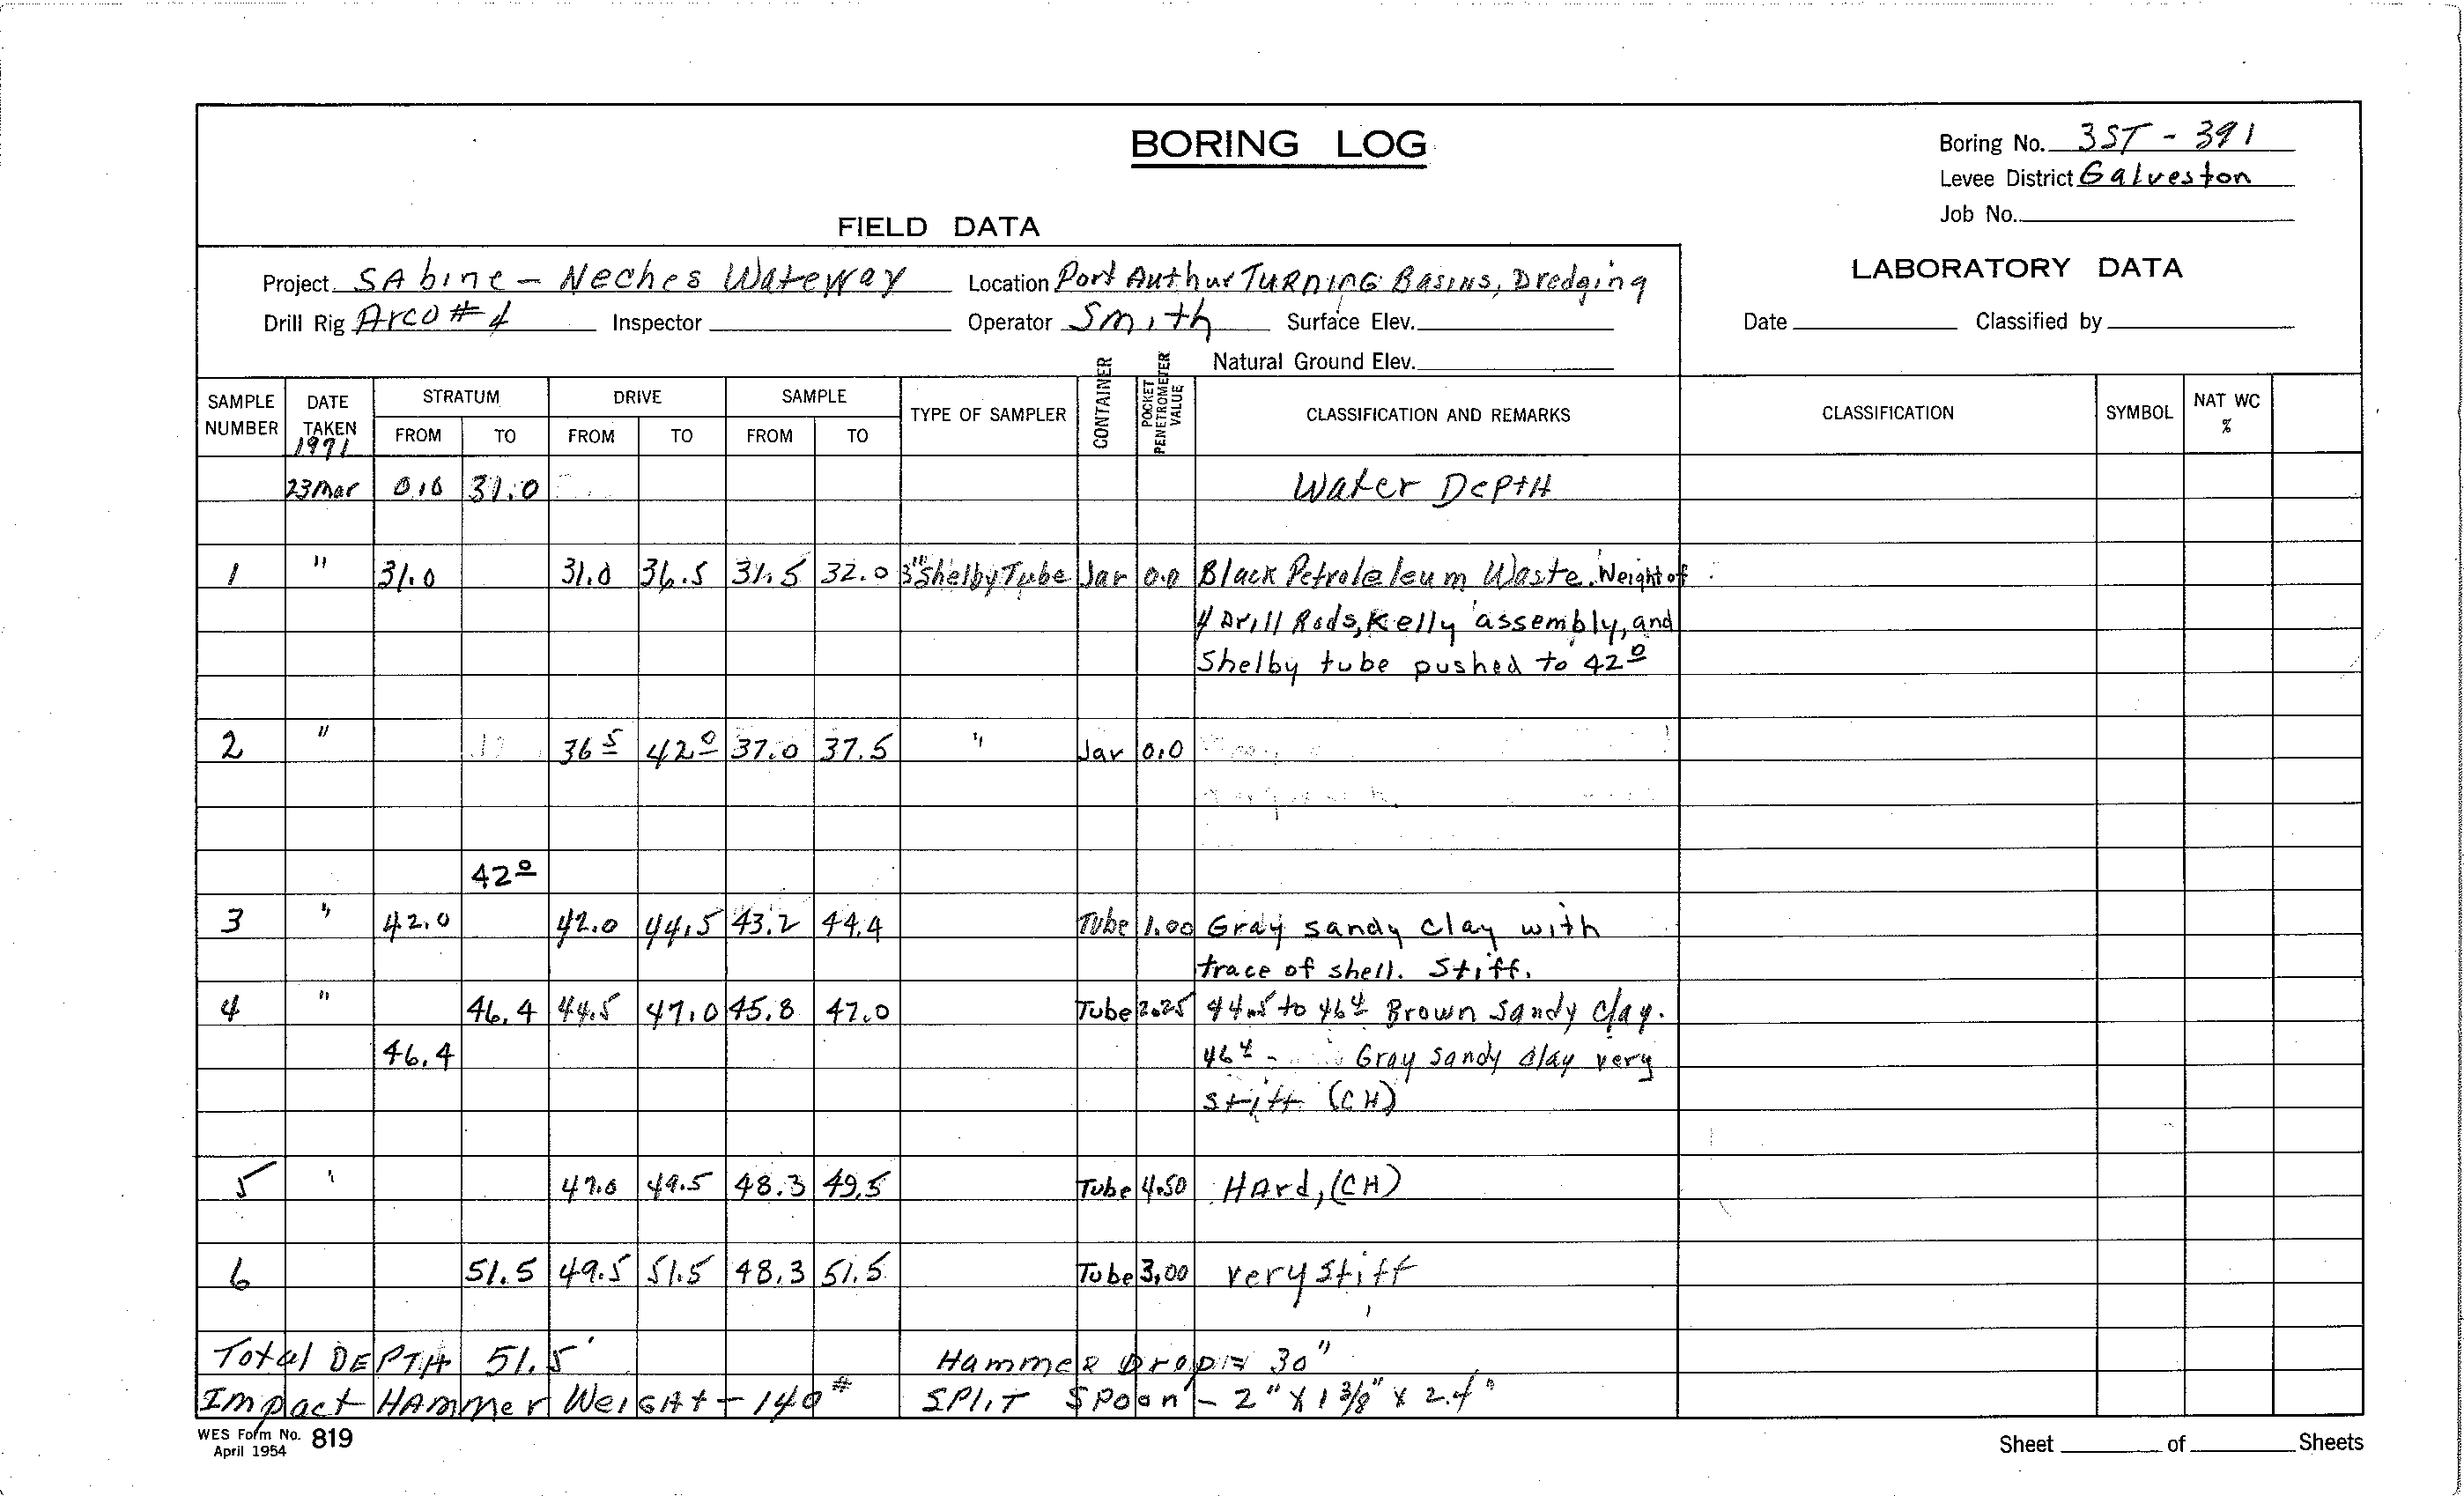 BORING LOG
Boring No. 3ST - 391
Levee District Galveston
Job No.
FIELD DATA
LABORATORY DATA
Project SAbine - Neches Waterway Location Port Authur TURNING BASINS, Dredging
Drill Rig Arco # 4 Inspector Operator Smith Surface Elev. Date Classified by
Natural Ground Elev.
SAMPLE NUMBER DATE TAKEN 1971 STRATUM FROM TO DRIVE FROM TO SAMPLE FROM TO TYPE OF SAMPLER CONTAINER POCKET PENETROMETER VALUE CLASSIFICATION AND REMARKS CLASSIFICATION SYMBOL NAT WC %
23 Mar 0.0 31.0 Water DepTH
1 " 31.0 31.0 36.5 31.5 32.0 3" Shelby Tube Jar 0.0 Black Petroleleum Waste. Weight of
4 Drill Rods, Kelly assembly, and
Shelby tube pushed to 42.0
2 " 36.5 42.0 37.0 37.5 " Jar 0.0
42.0
3 " 42.0 42.0 44.5 43.2 44.4 Tube 1.00 Gray sandy clay with
trace of shell. Stiff.
4 " 46.4 44.5 47.0 45.8 47.0 Tube 2.25 44.5 to 46.4 Brown sandy clay.
46.4 46.4 - Gray sandy clay very
stiff (CH)
5 " 47.0 49.5 48.3 49.5 Tube 4.50 HArd, (CH)
6 51.5 49.5 51.5 48.3 51.5 Tube 3.00 very stiff
Total DEPTH 51.5' HammeR Drop = 30"
Impact HAmmer WeiGHt - 140# SPLIT SPoon - 2" X 1 3/8" X 2.4'
WES Form No. 819
April 1954
Sheet of Sheets